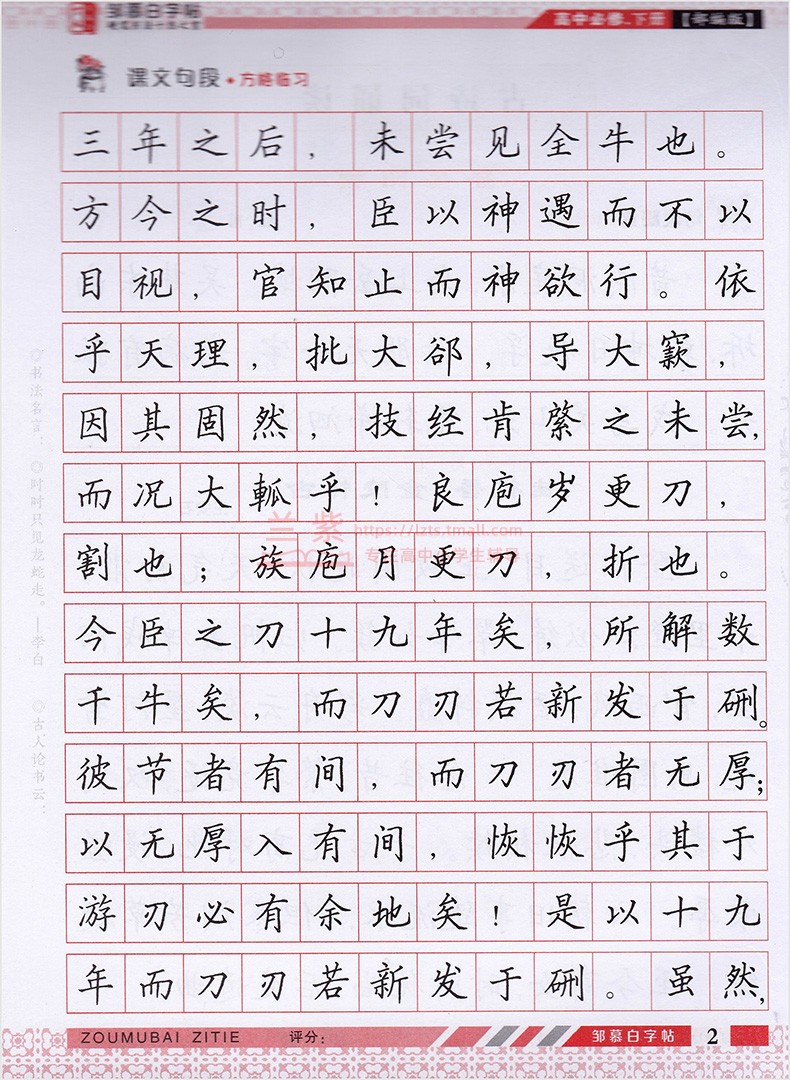 邹慕白字帖
高中必修·下册 【部编版】
课文句段·方格临习
三年之后，未尝见全牛也。
方今之时，臣以神遇而不以
目视，官知止而神欲行。依
乎天理，批大郤，导大窾，
因其固然，技经肯綮之未尝，
而况大軱乎！良庖岁更刀，
割也；族庖月更刀，折也。
今臣之刀十九年矣，所解数
千牛矣，而刀刃若新发于硎。
彼节者有间，而刀刃者无厚；
以无厚入有间，恢恢乎其于
游刃必有余地矣！是以十九
年而刀刃若新发于硎。虽然，
◎书法名言：◎时时只见龙蛇走。—李白 ◎古人论书云：
兰紫 https://lzts.tmall.com
ZOUMUBAI ZITIE 评分： 邹慕白字帖 2